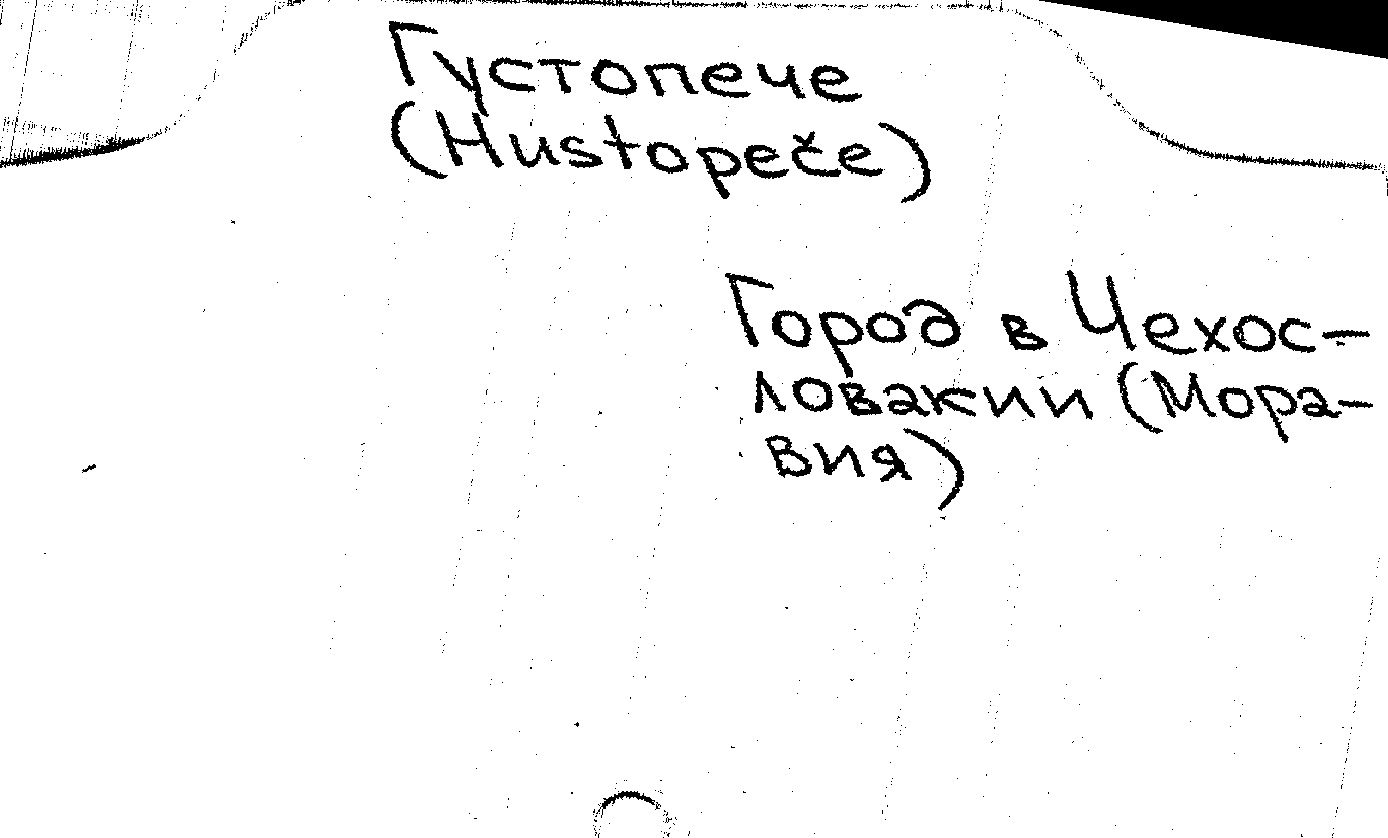 Густопече
(Hustopeče)
Город в Чехос-
ловакии (Мора-
вия)